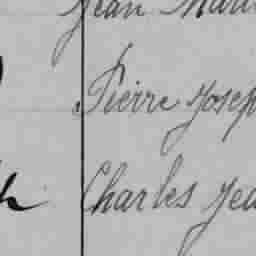 Jean Marie
Pierre Josep
Charles Jea